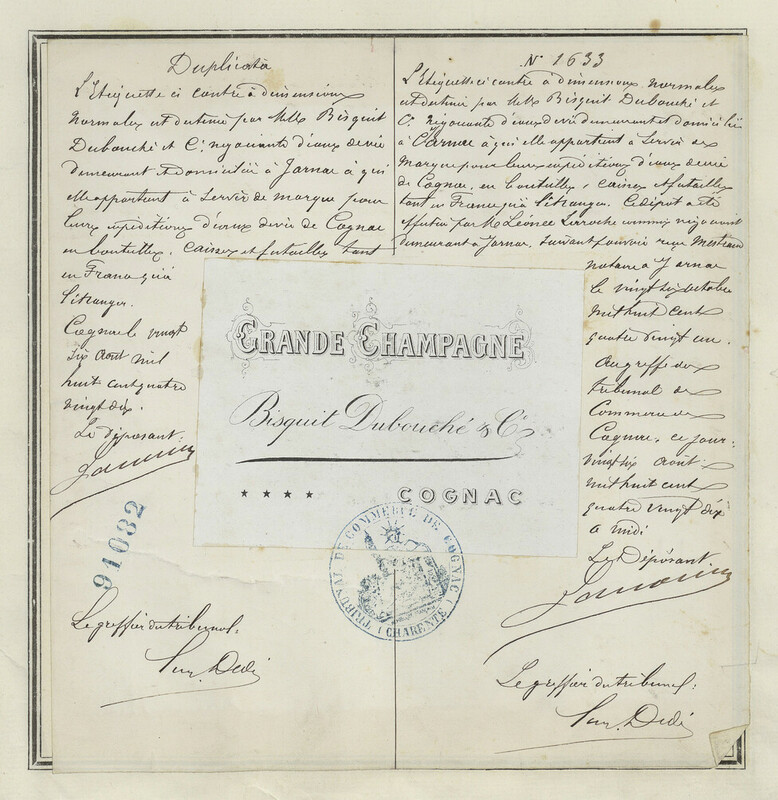 Duplicata
L'Etiquette ci contre à dimensions
normales est destinée par Mrs Bisquit
Dubouché et Cie négociants d'eaux de vie
demeurant et domiciliés à Jarnac à qui
elle appartient à servir de marque pour
leurs expéditions d'eaux de vie de Cognac
en bouteilles, caisses et futailles tant
en France qu'à
l'étranger.
Cognac le vingt
six Août mil
huit cent quatre
vingt dix.
Le déposant:
91032
Le greffier du tribunal:
N° 1633
L'Etiquette ci contre à dimensions normales
est destinée par Mrs Bisquit Dubouché et
Cie négociants d'eaux de vie demeurant et domiciliés
à Jarnac à qui elle appartient à servir de
marque pour leurs expéditions d'eaux de vie
de Cognac, en bouteilles, caisses et futailles
tant en France qu'à l'étranger. Ce dépôt a été
effectué par M. Léonce Larroche commis négociant
demeurant à Jarnac, suivant pouvoir reçu
notaire à Jarnac
le vingt six octobre
mil huit cent
quatre vingt un.
Au greffe du
tribunal de
Commerce de
Cognac, ce jour:
vingt six août
mil huit cent
quatre vingt dix
à midi
Le Déposant
Le greffier du tribunal:
GRANDE CHAMPAGNE
Bisquit Dubouché & Cie
★ ★ ★ ★ COGNAC
TRIBUNAL DE COMMERCE DE COGNAC
(CHARENTE)